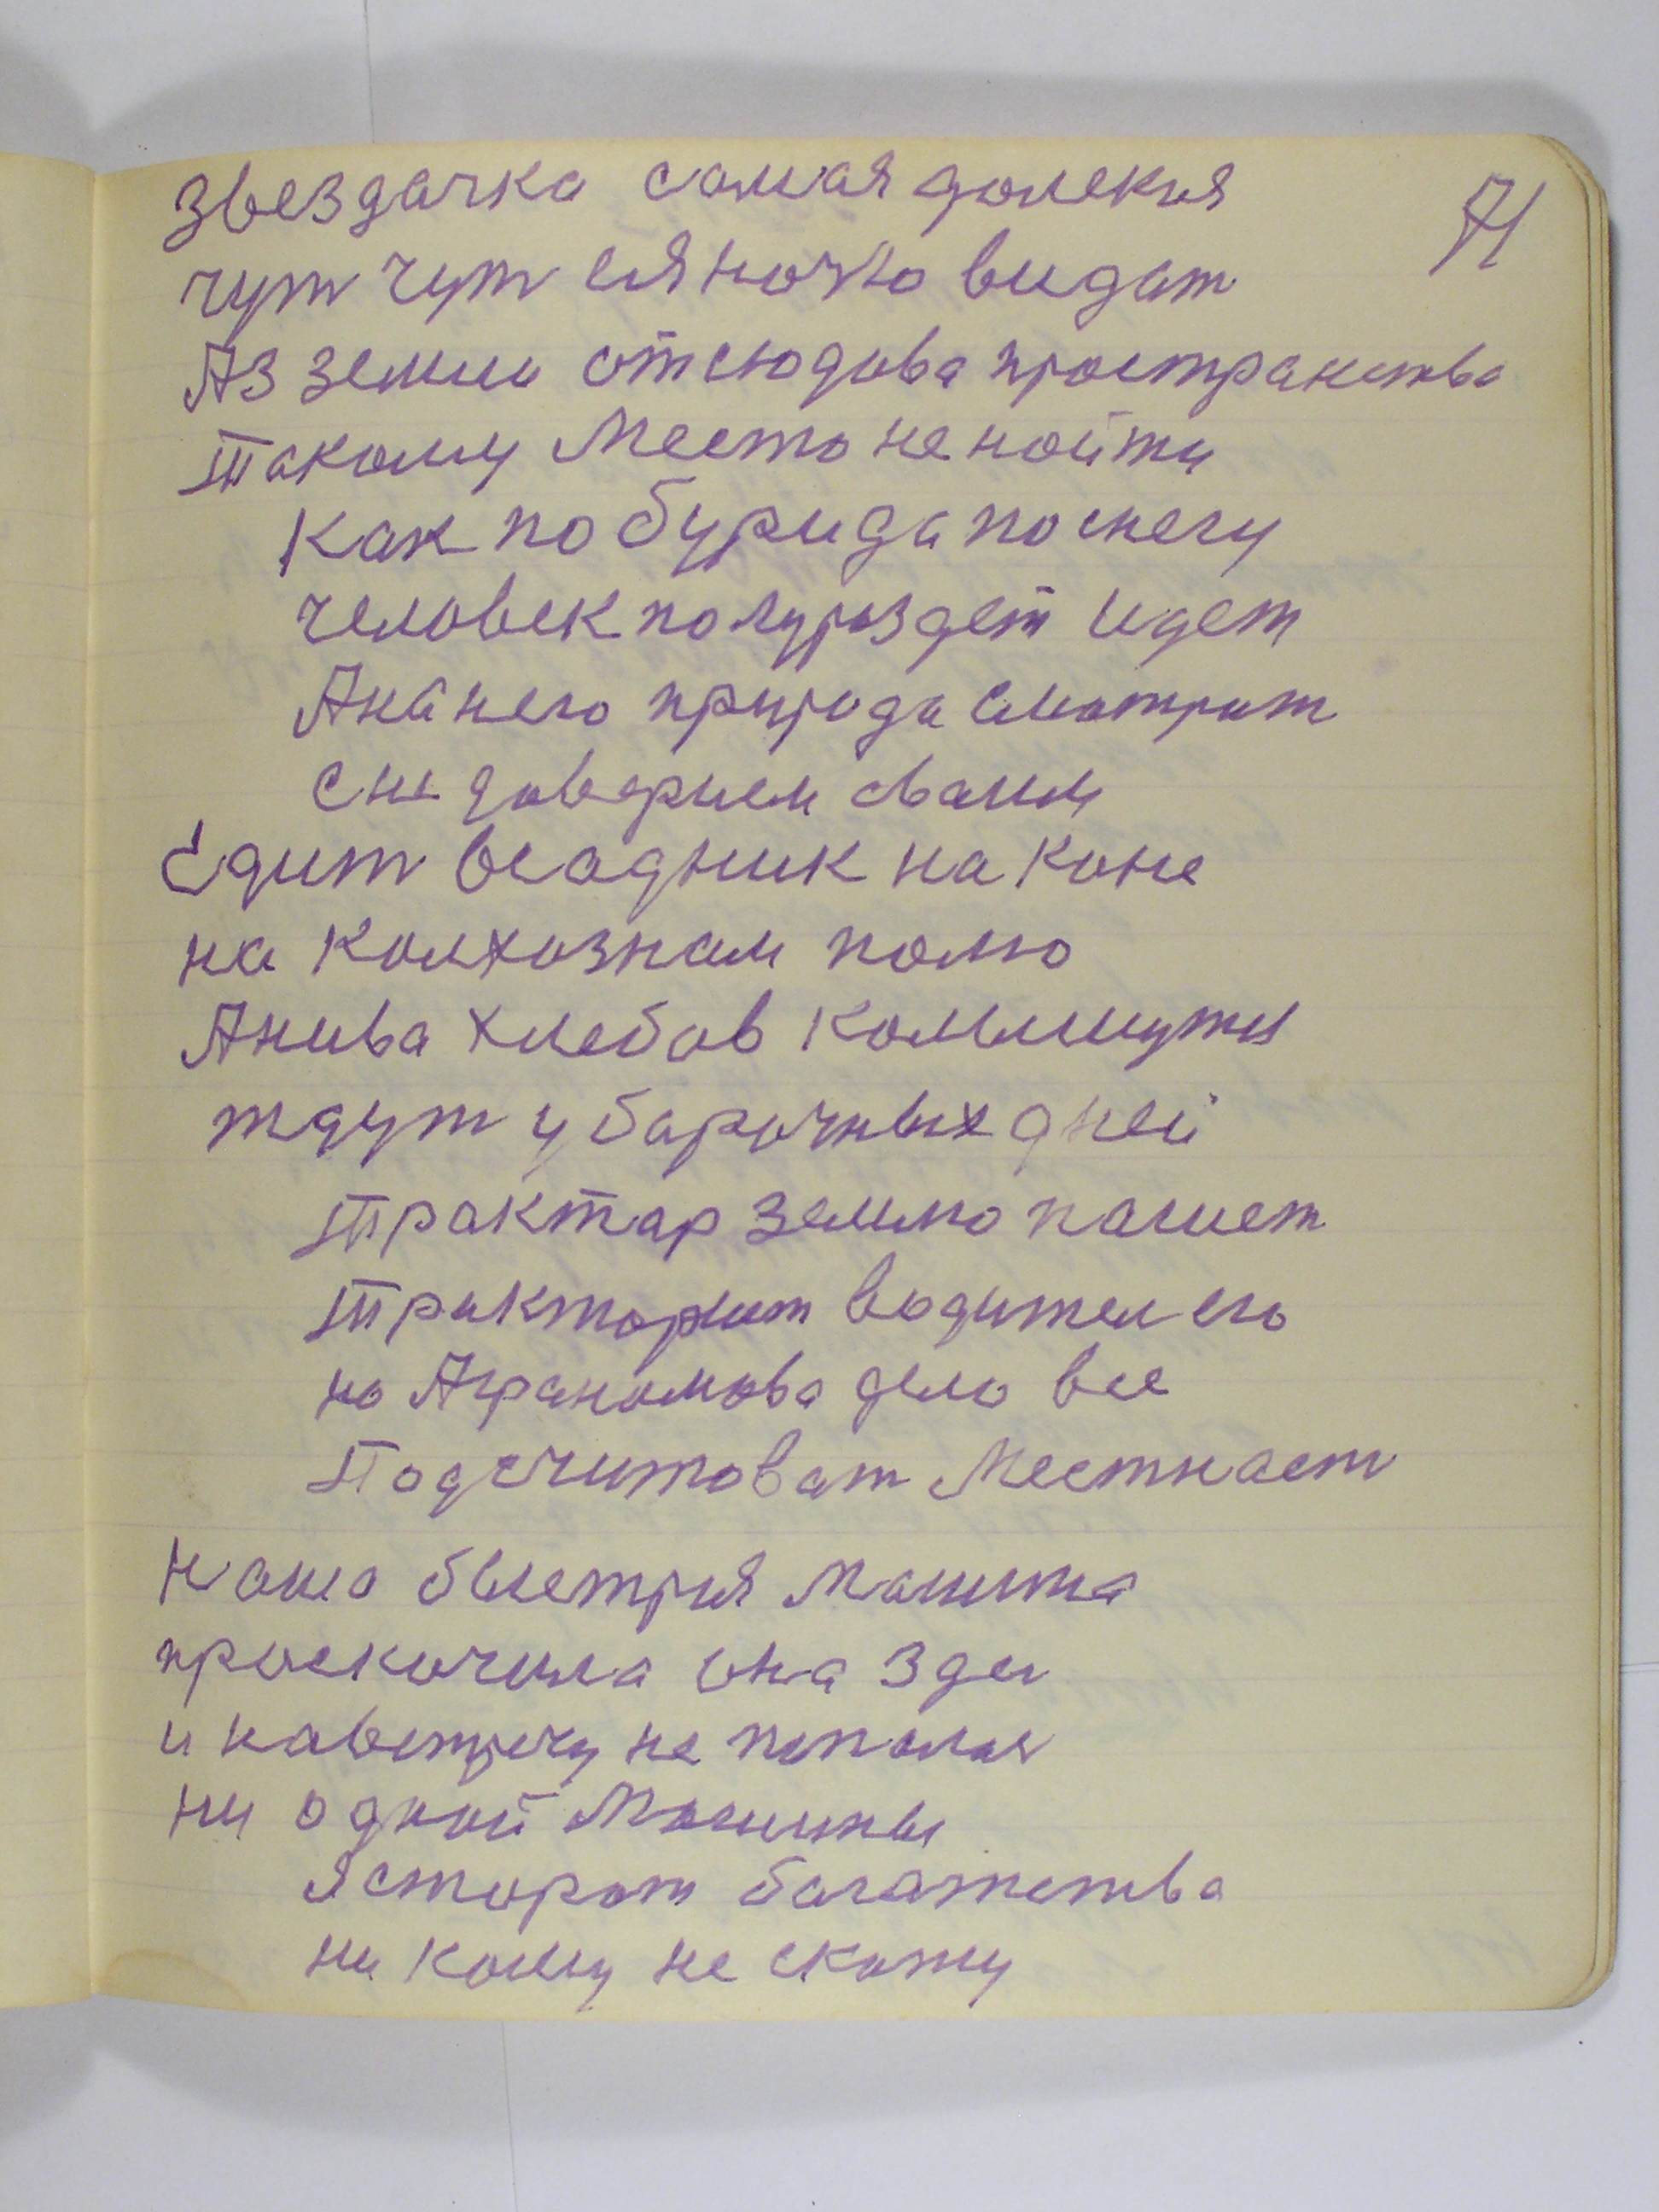 звездачка самая долекия 71
чут чут ея ночъю видат
Аз земли отсюдава пространства
такому Место не нойти
Как по бури да по снегу
человек полураздет идет
А на него природа смотрит
с не доверием сваим
Едит всадник на коне
на Колхознам полю
А нива хлебов коммунеты
ждут убарочных дней
трактар землю пашет
тракторист водител его
но Аграномова дело все
Подсчитоват Местнаст
Наша быстрия Машина
проскочила она здес
и навстречу не попалас
ни одной Машины
Я стират багатства
ни кому не скажу